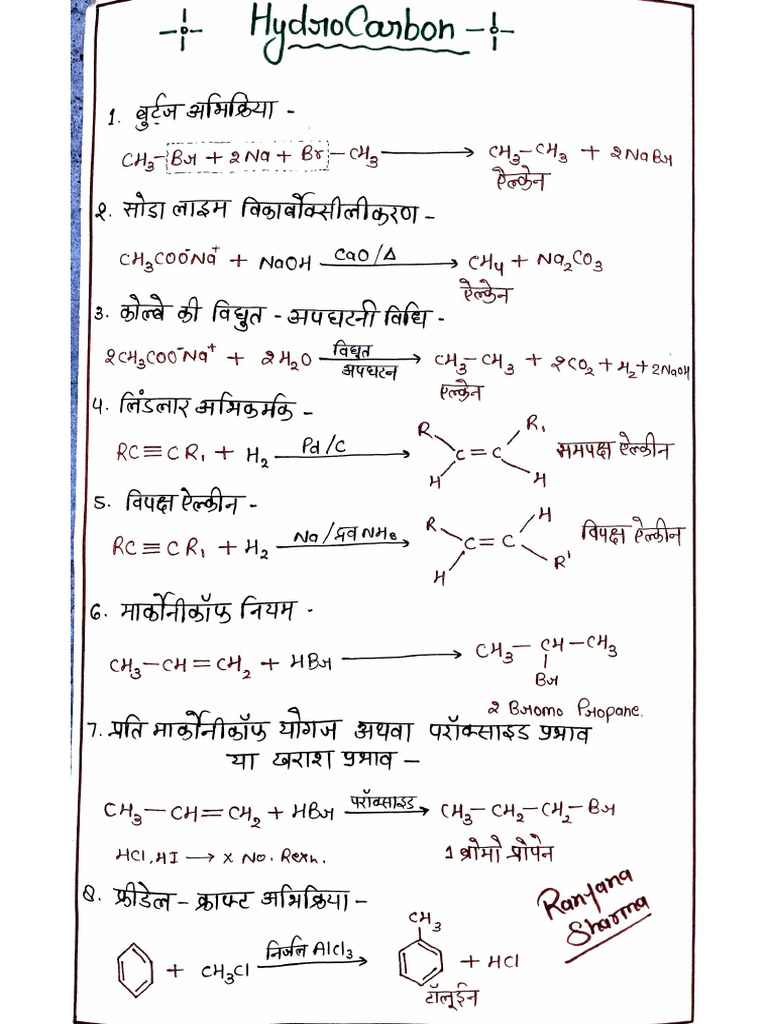 HydroCarbon
1. वुर्ट्ज अभिक्रिया -
CH₃-Br + 2Na + Br-CH₃ ⟶ CH₃-CH₃ + 2NaBr
ऐल्केन
2. सोडा लाइम विकार्बोक्सीलीकरण -
CH₃COO⁻Na⁺ + NaOH CaO/Δ ⟶ CH₄ + Na₂CO₃
ऐल्केन
3. कोल्बे की विधुत - अपघटनी विधि -
2CH₃COO⁻Na⁺ + 2H₂O विधुत अपघटन ⟶ CH₃-CH₃ + 2CO₂ + H₂ + 2NaOH
ऐल्केन
4. लिंडलार अभिकर्मक -
RC≡CR₁ + H₂ Pd/C ⟶ R R₁ C=C H H समपक्ष ऐल्कीन
5. विपक्ष ऐल्कीन -
RC≡CR₁ + H₂ Na/द्रव NH₃ ⟶ R H C=C H R' विपक्ष ऐल्कीन
6. मार्कोनीकॉफ नियम -
CH₃-CH=CH₂ + HBr ⟶ CH₃-CH-CH₃
Br
2 Bromo Propane.
7. प्रति मार्कोनीकॉफ योगज अथवा परॉक्साइड प्रभाव
या खराश प्रभाव -
CH₃-CH=CH₂ + HBr परॉक्साइड ⟶ CH₃-CH₂-CH₂-Br
HCl, HI ⟶ x No. Rexn. 1 ब्रोमो प्रोपेन
8. फ्रीडेल - क्राफ्ट अभिक्रिया -
CH₃
+ CH₃Cl निर्जल AlCl₃ ⟶ + HCl
टॉलूईन
Ranjana
Sharma